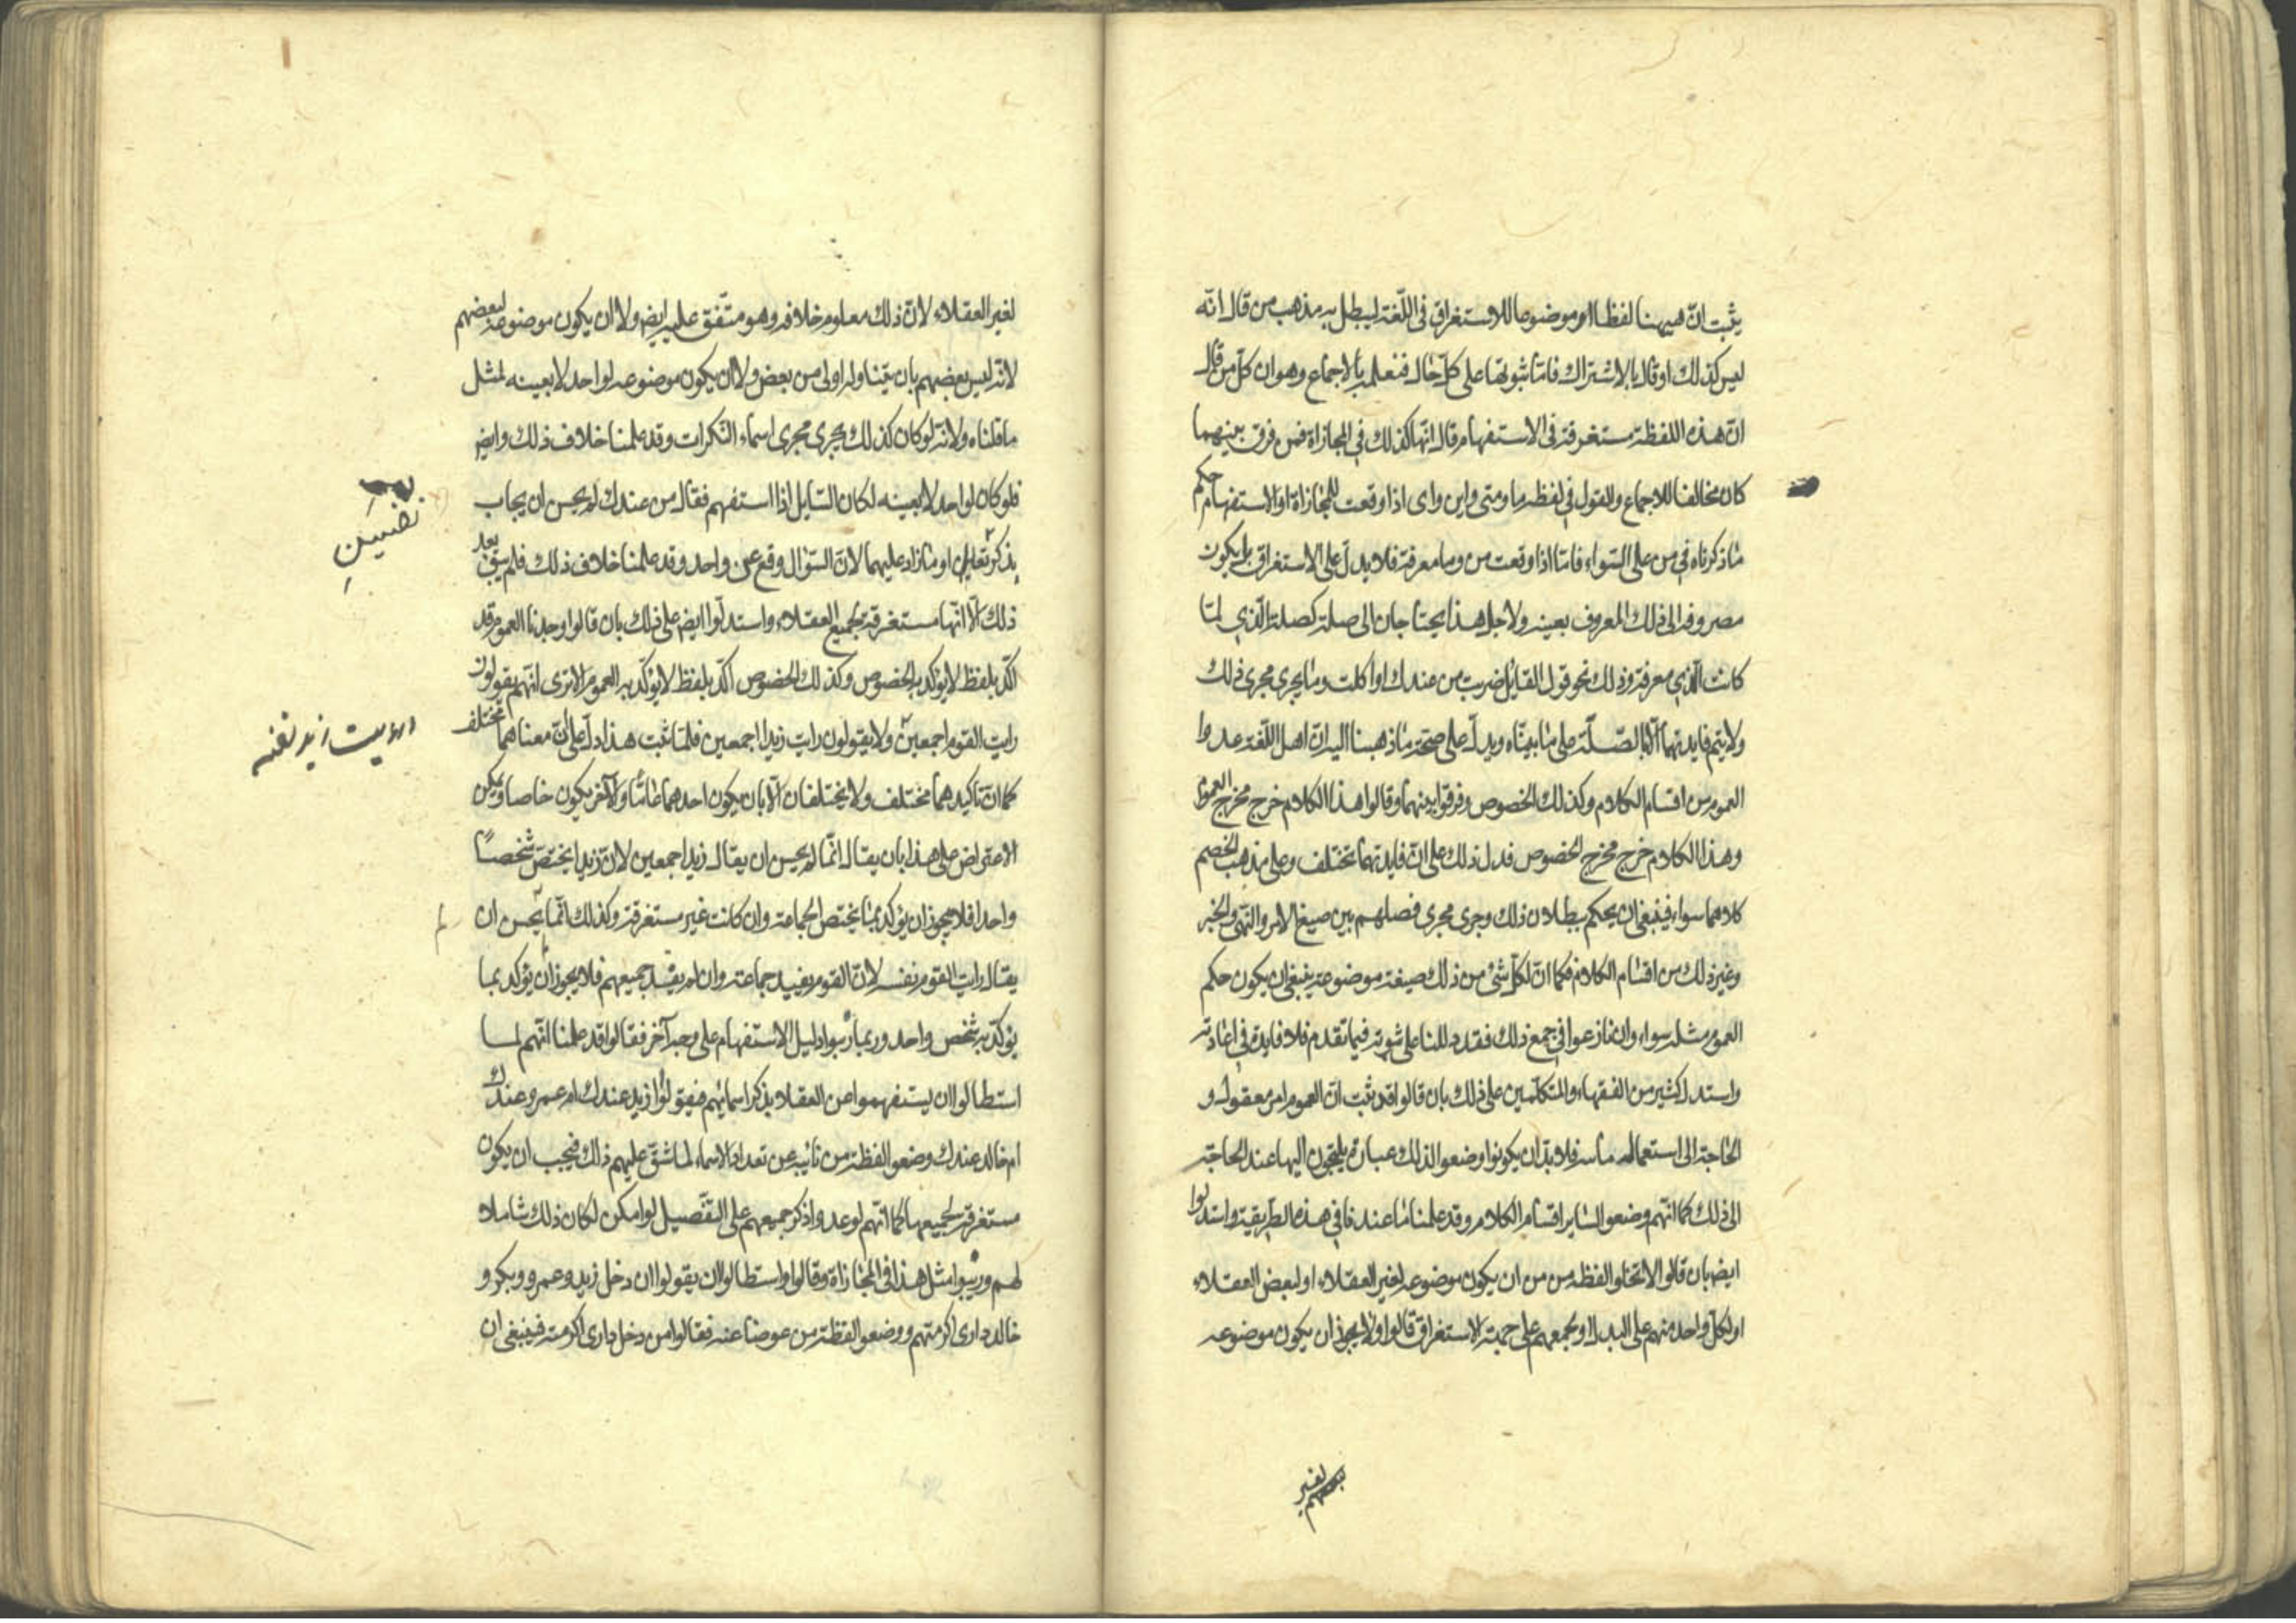 يثبت انّ هيهنا لفظا موضوعا للاستغراق فى اللّغة ليبطل به مذهب من قال انّه
ليس كذلك او قال بالاشتراك فامّا ثبوتها على كلّ حال فنعلمه بالاجماع وهو ان كلّ من قال
انّ هذه اللفظة مستغرقة فى الاستفهام قال انّها كذلك في المجازاة فمن فرق بينهما
كان مخالفا للاجماع والقول في لفظه ما ومتى واين واى اذا وقعت للمجازاة او الاستفهام حكم
ما ذكرناه في من على السّواء فامّا اذا وقعت من وما معرفة فلا يدلّ على الاستغراق بل يكون
مصروفه الى ذلك المعروف بعينه ولاجل هذا يحتاجان الى صلة كصلة الّذي لمّا
كانت الّذي معرفة وذلك نحو قول القايل ضربت من عندك او اكلت وما يجرى مجرى ذلك
ولا يتم فايدتهما الّا بالصّلة على ما بيّنّاه ويدلّ على صحّة ما ذهبنا اليه انّ اهل اللّغة عدوا
العموم من اقسام الكلام وكذلك الخصوص وفرقوا بينهما وقالوا هذا الكلام خرج مخرج العموم
وهذا الكلام خرج مخرج الخصوص فدل ذلك على انّ فايدتهما تختلف وعلى مذهب الخصم
كلاهما سواء فينبغى ان يحكم ببطلان ذلك وجرى مجرى فصلهم بين صيغ الامر والنّهى والخبر
وغير ذلك من اقسام الكلام فكما انّ لكلّ شئ من ذلك صيغة موضوعة ينبغى ان يكون حكم
العموم مثله سواء وان نازعوا في جمع ذلك فقد دللنا على ثبوته فيما تقدم فلا فايدة في اعادته
واستدل كثير من الفقهاء والمتكلّمين على ذلك بان قالوا قد ثبت انّ العموم امر معقول و
الحاجة الى استعماله ماسة فلا بدّ ان يكونوا وضعوا لذلك عبارة يلتجؤن اليها عند الحاجة
الى ذلك كما انّهم وضعوا لساير اقسام الكلام وقد علمنا ما عندنا في هذه الطّريقة واستدلوا
ايضا بان قالوا لا تخلو لفظه من من ان يكون موضوعه لغير العقلاء او لبعض العقلاء
او لكلّ واحد منهم على البدل او لجمعهم على جهة الاستغراق قالوا ولا يجوز ان يكون موضوعه
لغير
لغير العقلاء لانّ ذلك معلوم خلافه وهو متّفق عليه ايضا ولا ان يكون موضوعه لبعضهم
لانّه ليس بعضهم بان يتناوله اولى من بعض ولا ان يكون موضوعه لواحد لا بعينه لمثل
ما قلناه ولانّه لو كان كذلك يجرى مجرى اسماء النّكرات وقد علمنا خلاف ذلك وايضا
فلو كان لواحد لا بعينه لكان السّايل اذا استفهم فقال من عندك لم يحسن ان يجاب
بذكر او ما زاد عليهما لانّ السّؤال وقع عن واحد وقد علمنا خلاف ذلك فلم يبق بعد
نفسين
ذلك الّا انّها مستغرقة لجميع العقلاء واستدلّوا ايضا على ذلك بان قالوا وجدنا العموم قد
اكّد بلفظ لا يؤكد به الخصوص وكذلك الخصوص اكّد بلفظ لا يؤكّد به العموم الا ترى انّهم يقولون
رايت القوم اجمعين ولا يقولون رايت زيدا اجمعين فلمّا ثبت هذا دلّ على انّ معناهما مختلف
ورايت زيد نفسه
كما انّ تاكيدهما مختلف ولا يختلفان الّا بان يكون احدهما عامّا والآخر يكون خاصا ويمكن
الاعتراض على هذا بان يقال انّما لم يحسن ان يقال زيدا اجمعين لانّ زيدا يختصّ شخصًا
واحدا فلا يجوز ان يؤكد بما يختص الجماعة وان كانت غير مستغرقة وكذلك انّما يحسن ان
لم
يقال رايت القوم نفسه لانّ القوم يفيد جماعة وان لم يفد جميعهم فلا يجوز ان يؤكد بما
يؤكّد به شخص واحد وربما رتّبوا دليل الاستفهام على وجه آخر فقالوا قد علمنا انّهم لما
استطالوا ان يستفهموا عن العقلا بذكر اسمائهم فيقولوا ازيد عندك ام عمرو عندك
ام خالد عندك وضعوا لفظة من نائبة عن تعداد الاسماء لما شقّ عليهم ذلك فيجب ان يكون
مستغرقة لجميعها كما انّهم لو عدوا ذكر جميعهم على التّفصيل لو امكن لكان ذلك شاملا
لهم ورتّبوا مثل هذا فى المجازاة وقالوا واستطالوا ان يقولوا ان دخل زيد وعمرو وبكر و
خالد دارى اكرمتهم ووضعوا لفظة من عوضا عنه فقالوا من دخل دارى اكرمته فينبغى ان